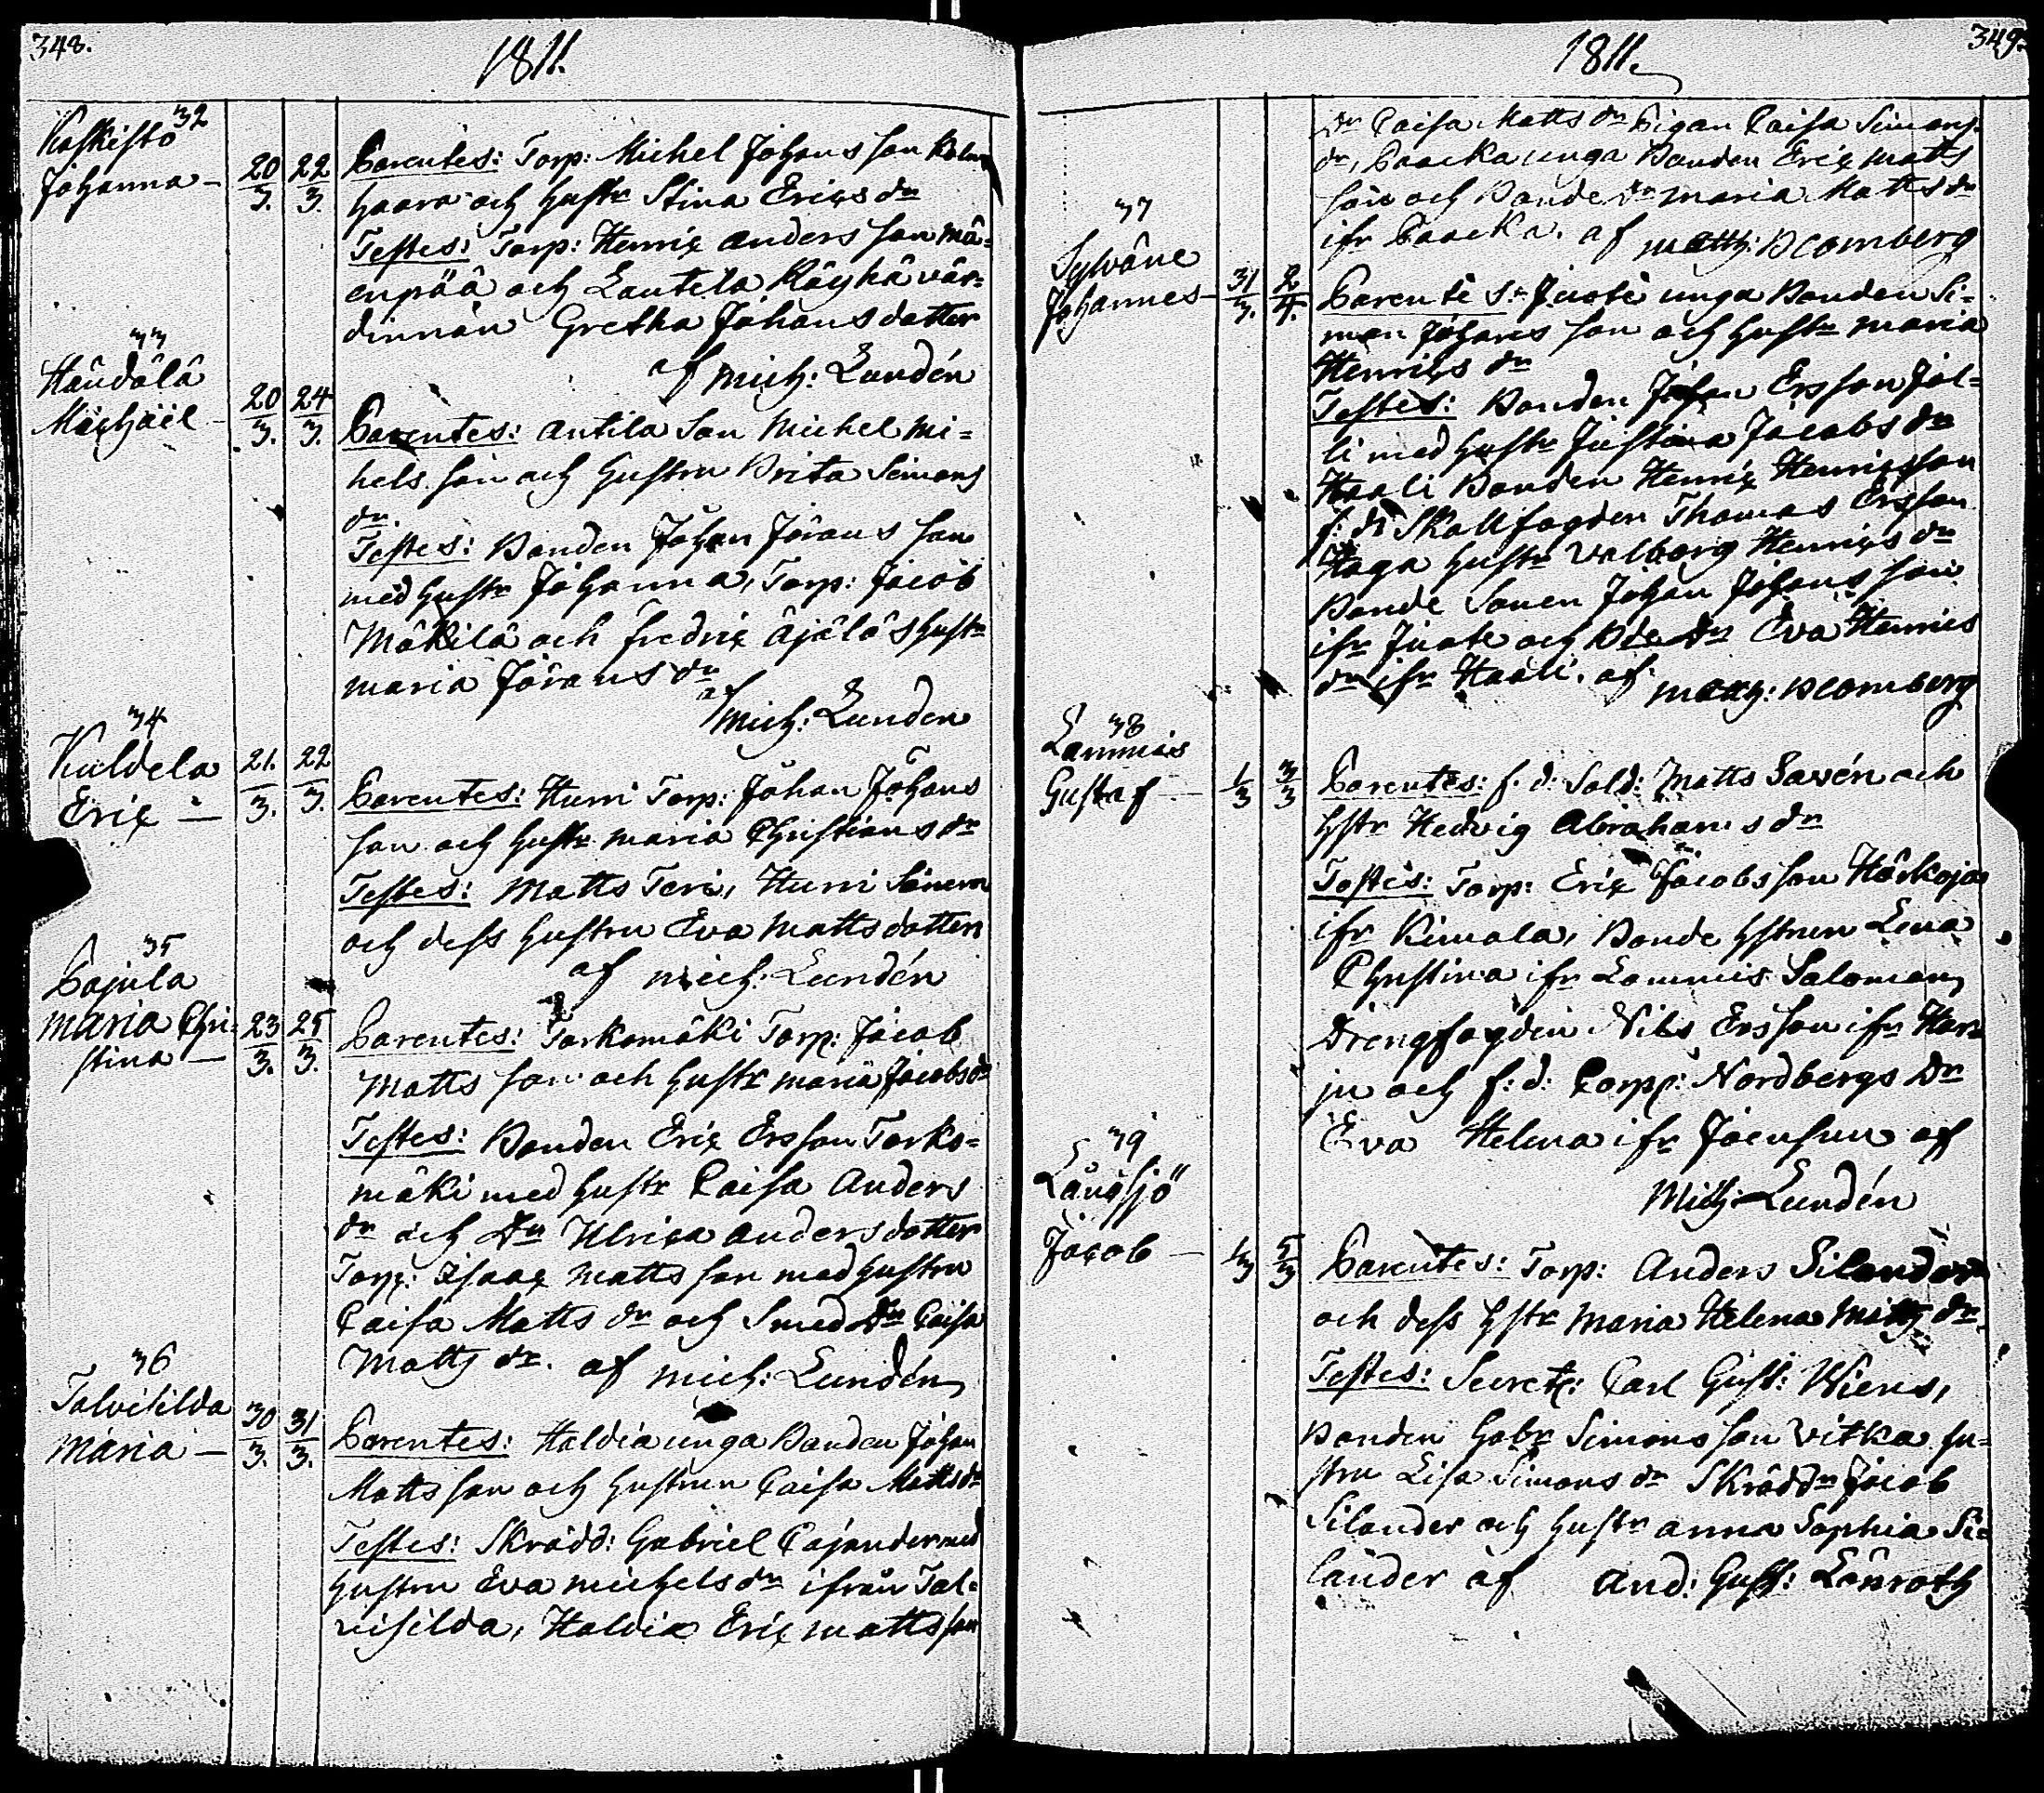 348.
1811.
32
Koskisto
Johanna —
20/3. 22/3.
Parentes: Torp: Michel Johans son Kolm
haara och hustr Stina Erics dr
Testes: Torp: Henric Anders son Mä=
enpää och Lautela Käyhä vär=
dinnan Gretha Johans dotter
af Mich: Lundén
33
Händölä
Michaël —
20/3. 24/3.
Parentes: Antila Son Michel Mi=
hels son och hustru Brita Simons
dr.
Testes: Bonden Johan Jörans son
med hustr Johanna, Torp: Jacob
Mäkilä och fredric Äjälä's hustr
Maria Jörans dr
af Mich: Lunden
34
Kuldela
Eric —
21./3. 22/3.
Parentes: Hurri Torp: Johan Johans
son och hustr Maria Christians dr
Testes: Matts Teri, Hurri Sonen
och dess hustru Eva Matts dotter
af Mich: Lundén
35
Pajula
Maria Chri=
stina —
23/3. 25/3.
Parentes: Torkomäki Torp: Jacob
Matts son och hustr Maria Jacobs dr
Testes: Bonden Eric Ersson Torko=
mäki med hustr Caisa Anders
dr och Dr Ulrica Anders dotter
Torp: Isaac Matts son med hustru
Caisa Matts dr och Smed Dr Caisa
Matts dr. af Mich: Lundén
36
Talvisilda
Maria —
30/3. 31/3.
Parentes: Haldia unga Bonden Johan
Matts son och hustrun Caisa Matts dr
Testes: Skrädd: Gabriel Cajander med
hustru Eva Michels dr ifrån Tal=
visilda, Haldia Eric Matts son
1811.
349.
dr Caisa Matts dr Pigan Caisa Simons
dr, Paacka unga Bonden Eric Matts
son och Bonde dr Maria Matts dr
ifr Paacka. af Matth: Blomberg
37
Sylväne
Johannes —
31/3. 2/4.
Parentes: Juoté unga Bonden Si=
mon Johans son och hustr Maria
Henrics dr
Testes: Bonden Johan Ersson Jal=
li med hustr Justina Jacobs dr
Haali Bonden Henric Henricsson
f: d: Skallfogden Thomas Ersson
Haga hustr Valborg Henrics dr
Bonde Sonen Johan Johans son
ifr Juote och Bde Dr Eva Henrics
dr ifr Haali. af Matth: Blomberg
38
Lammis
Gustaf —
1/3 3/3
Parentes: f. d. Sold: Matts Savén och
hstr Hedvig Abrahams dr
Testes: Torp: Eric Jacobs son Härkoja
ifr Kimala, Bonde hstrun Lena
Christina ifr Lammis Salomon,
Drengfogden Nils Ersson ifr Har=
ju och f: d: Corpp: Nordbergs Dr
Eva Helena ifr Joensuu af
Mich: Lundén
39
Långsjö
Jacob —
1/3 5/3
Parentes: Torp: Anders Silander
och dess hstr Maria Helena Matts dr.
Testes: Secret: Carl Gust: Wiens,
Bonden Gabr Simons son Vitka hu=
stru Lisa Simons dr Skräddr Jacob
Silander och hustr Anna Sophia Si=
lander af And: Gust: Lönroth